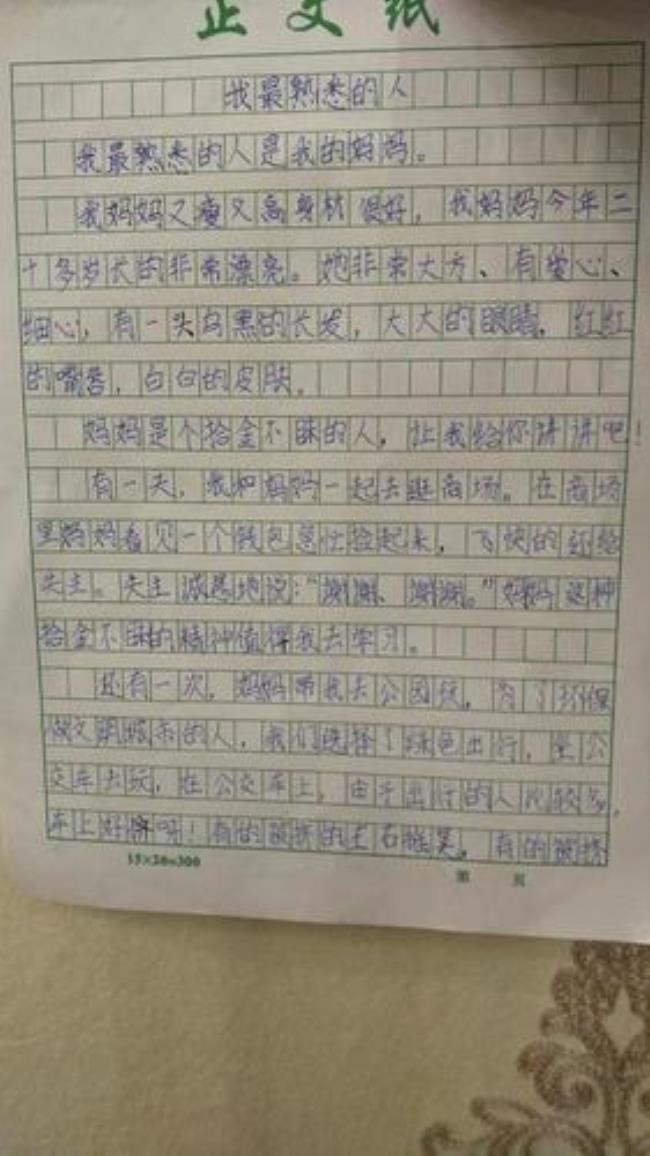 正文纸
我最熟悉的人
我最熟悉的人是我的妈妈。
我妈妈又瘦又高身材很好，我妈妈今年二
十多岁长的非常漂亮。她非常大方、有爱心、
细心，有一头乌黑的长发，大大的眼睛，红红
的嘴唇，白白的皮肤。
妈妈是个拾金不昧的人，让我给你讲讲吧！
有一天，我和妈妈一起去逛商场。在商场
里妈妈看见一个钱包急忙捡起来，飞快的还给
失主。失主诚恳地说：“谢谢、谢谢。”妈妈这种
拾金不昧的精神值得我去学习。
还有一次，妈妈带我去公园玩，为了环保
做文明城市的人，我们选择了绿色出行，坐公
交车去玩，在公交车上，由于出行的人比较多，
车上好挤呀！有的被挤的左右摇晃，有的被挤
15×20=300
第 页